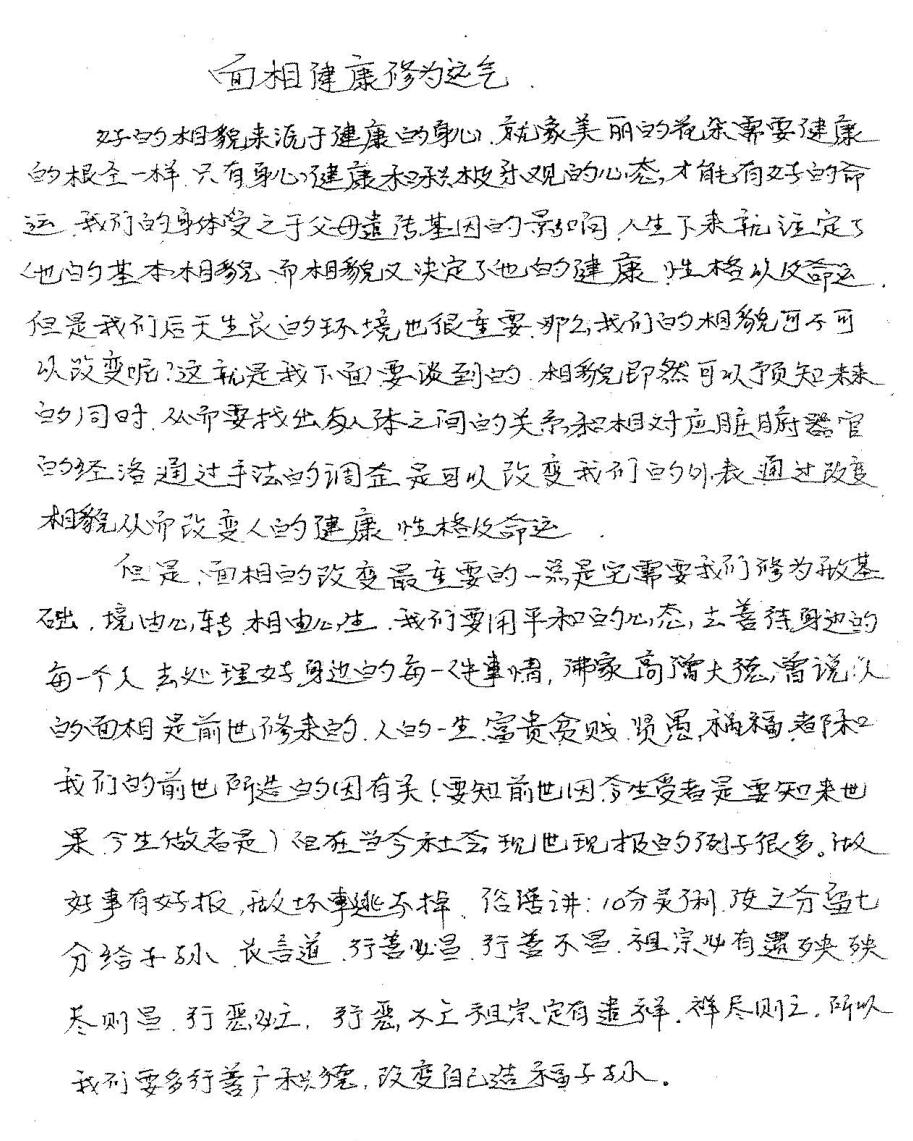 面相健康修为运气.
好的相貌来源于健康的身心.就象美丽的花朵需要健康
的根茎一样.只有身心健康和积极乐观的心态,才能有好的命
运.我们的身体受之于父母遗传基因的影响,人生下来就注定了
他的基本相貌.而相貌又决定了他的健康.性格以及命运.
但是我们后天生长的环境也很重要.那么我们的相貌可不可
以改变呢?这就是我下面要谈到的.相貌即然可以预知未来
的同时.从而要找出与人体之间的关系和相对应脏腑器官
的经洛通过手法的调整是可以改变我们的外表通过改变
相貌从而改变人的健康性格及命运.
但是,面相的改变最重要的一点是它需要我们修为做基
础.境由心转.相由心生.我们要用平和的心态,去善待身边的
每一个人去处理好身边的每一件事情,佛家高僧大德,曾说:人
的面相是前世修来的.人的一生.富贵贫贱.贤愚,祸福.都和
我们的前世所造的因有关(要知前世因.今生受者是要知来世
果.今生做者是)但在当今社会现世现报的例子很多。做
好事有好报,做坏事逃不掉.俗语讲:10分灵利.使七分留七
分给子孙.长言道.行善必昌.行善不昌.祖宗必有遗殃殃
尽则昌.行恶必亡.行恶,不亡祖宗定有遗祥.祥尽则亡.所以
我们要多行善广积德,改变自己造福子孙。